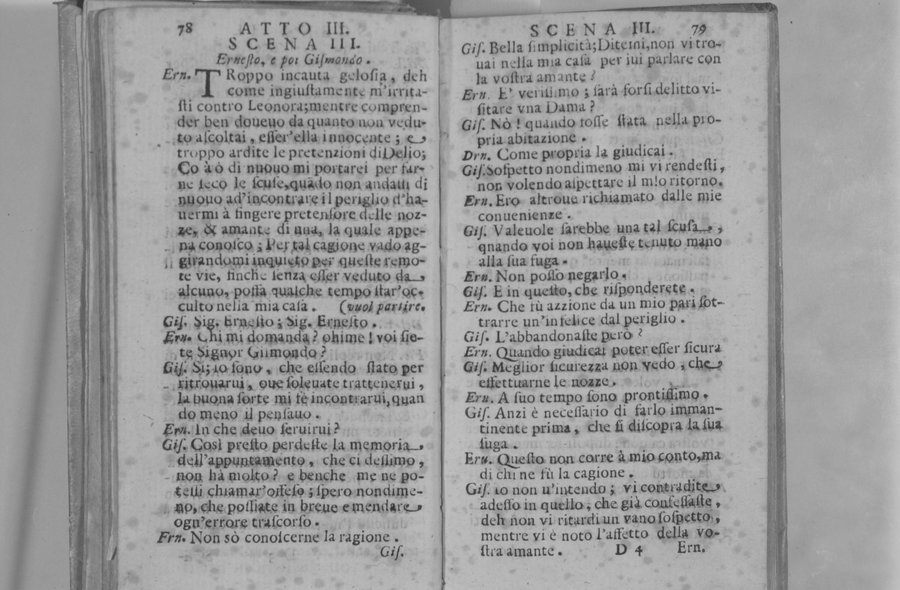 78 ATTO III.
SCENA III.
Ernesto, e poi Gismondo.
Ern. TRoppo incauta gelosia, deh
come ingiustamente m'irrita-
sti contro Leonora; mentre compren-
der ben doueuo da quanto non vedu-
to ascoltai, esser'ella innocente; e
troppo ardite le pretenzioni di Delio;
Cò à ò di nuouo mi portarei per far-
ne seco le scuse, quãdo non andassi di
nuouo ad'incontrare il periglio d'ha-
uermi à fingere pretensore delle noz-
ze, & amante di una, la quale appe-
na conosco; Per tal cagione vado ag-
girandomi inquieto per queste remo-
te vie, finche senza esser veduto da
alcuno, possa qualche tempo star'oc-
culto nella mia casa. (vuol partire.
Gis. Sig. Ernesto; Sig. Ernesto.
Ern. Chi mi domanda? ohime! voi sie-
te Signor Gismondo?
Gis. Sì; io sono, che essendo stato per
ritrouarui, oue soleuate trattenerui,
la buona sorte mi fè incontrarui, quan
do meno il pensauo.
Ern. In che deuo seruirui?
Gis. Così presto perdeste la memoria
dell'appuntamento, che ci dessimo,
non hà molto? e benche me ne po-
tessi chiamar'offeso; spero nondime-
no, che possiate in breue emendare
ogn'errore trascorso.
Ern. Non sò conoscerne la ragione.
Gis.
SCENA III. 79
Gis. Bella simplicità; Ditemi, non vi tro-
uai nella mia casa per iui parlare con
la vostra amante?
Ern. E' verissimo; sarà forsi delitto vi-
sitare vna Dama?
Gis. Nò! quando fosse stata nella pro-
pria abitazione.
Drn. Come propria la giudicai.
Gis. Sospetto nondimeno mi vi rendesti,
non volendo aspettare il mio ritorno.
Ern. Ero altroue richiamato dalle mie
conuenienze.
Gis. Valeuole sarebbe una tal scusa,
qnando voi non haueste tenuto mano
alla sua fuga.
Ern. Non posso negarlo.
Gis. E in questo, che risponderete.
Ern. Che fù azzione da un mio pari sot-
trarre un'infelice dal periglio.
Gis. L'abbandonaste però?
Ern. Quando giudicai poter esser sicura
Gis. Meglior sicurezza non vedo, che
effettuarne le nozze.
Ern. A suo tempo sono prontissimo.
Gis. Anzi è necessario di farlo imman-
tinente prima, che si discopra la sua
fuga.
Ern. Questo non corre à mio conto, ma
di chi ne fù la cagione.
Gis. Io non u'intendo; vi contradite
adesso in quello, che già confessaste,
deh non vi ritardi un vano sospetto,
mentre vi è noto l'affetto della vo-
stra amante. D 4 Ern.